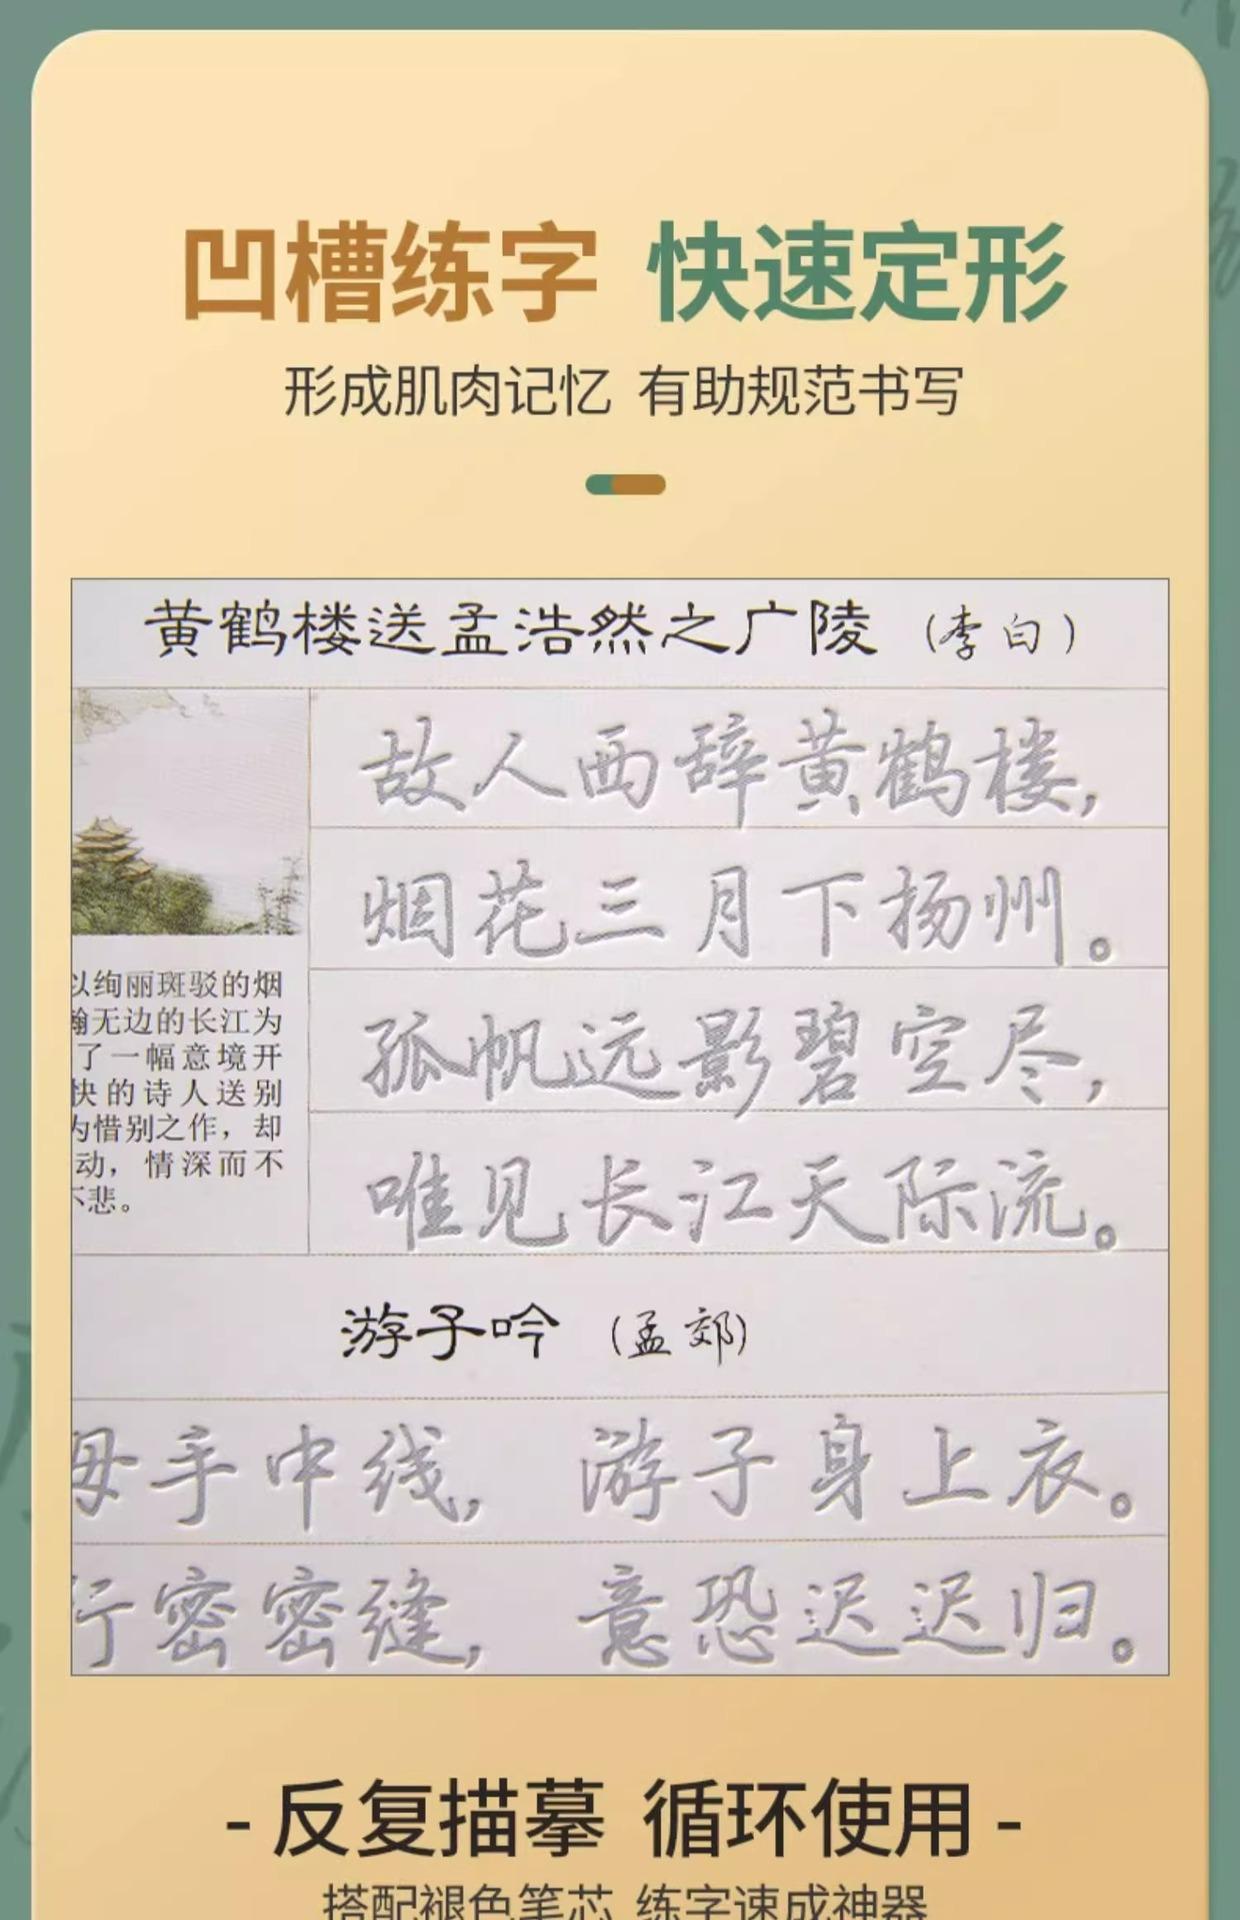 凹槽练字 快速定形
形成肌肉记忆 有助规范书写
黄鹤楼送孟浩然之广陵 (李白)
故人西辞黄鹤楼,
烟花三月下扬州。
孤帆远影碧空尽,
唯见长江天际流。
以绚丽斑驳的烟
瀚无边的长江为
了一幅意境开
快的诗人送别
为惜别之作，却
动，情深而不
不悲。
游子吟 (孟郊)
母手中线, 游子身上衣。
行密密缝, 意恐迟迟归。
- 反复描摹 循环使用 -
搭配褪色笔芯 练字速成神器